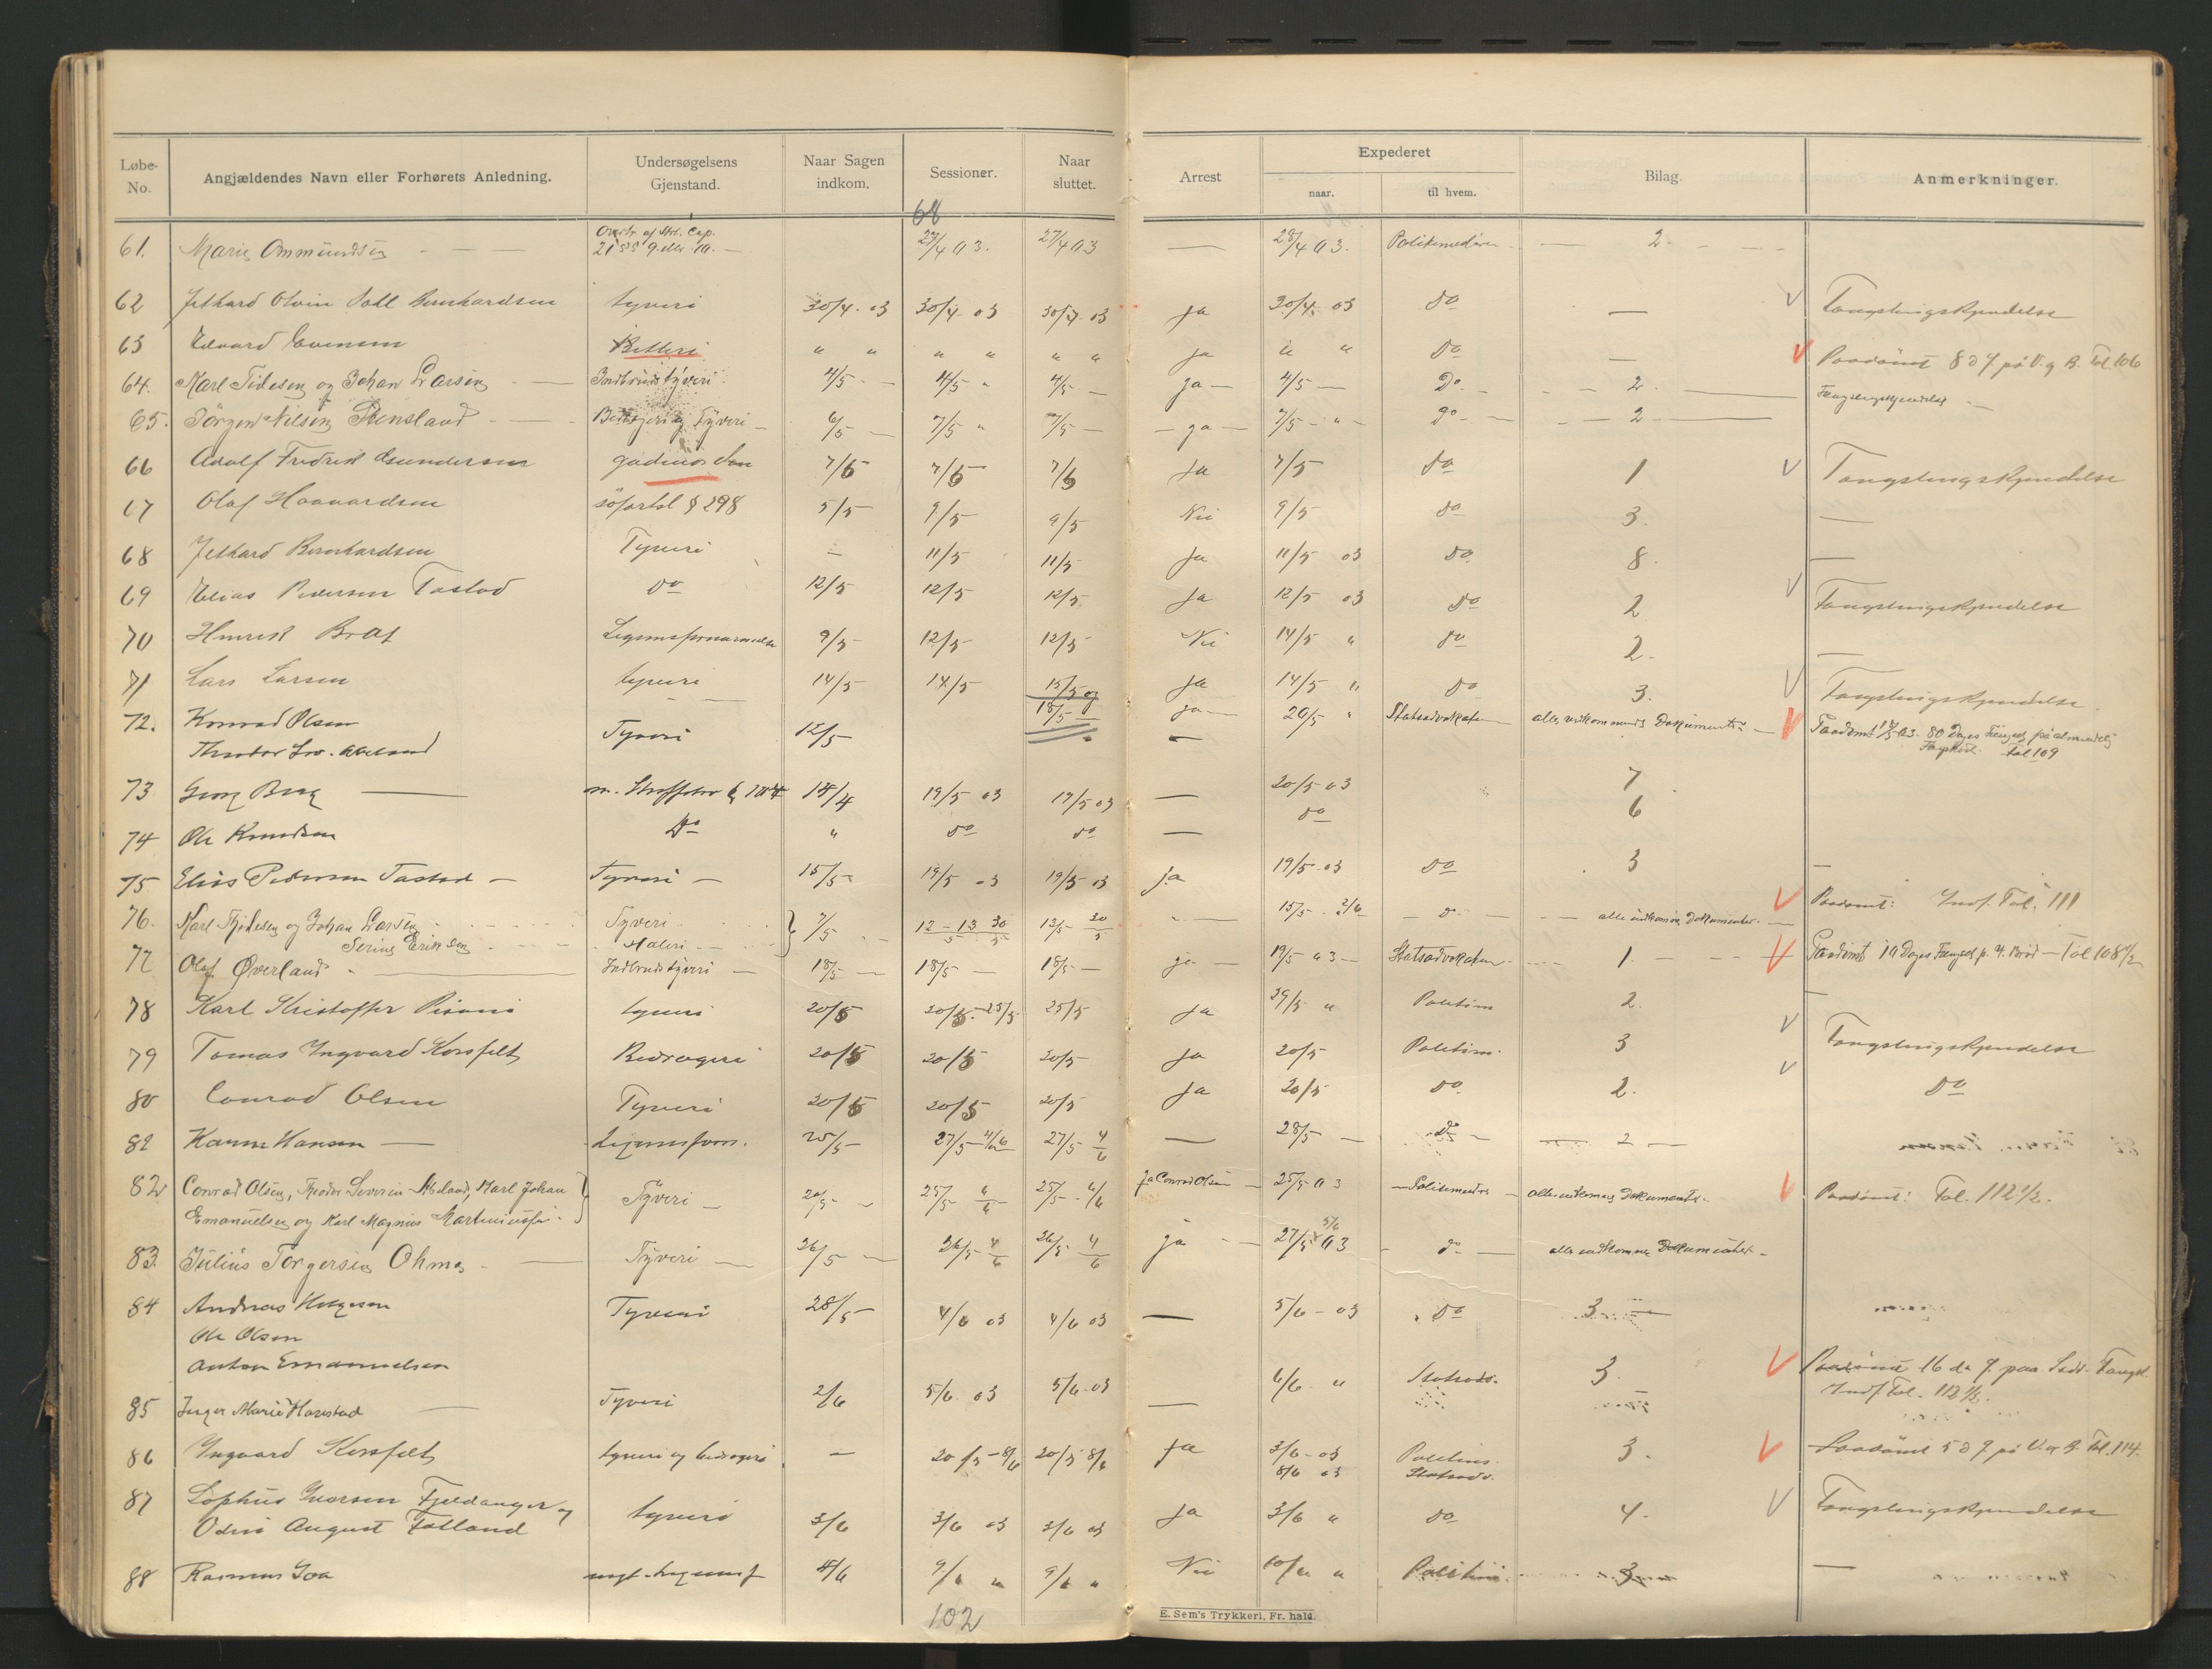 Løbe-No. Angjældendes Navn eller Forhørets Anledning. Undersøgelsens Gjenstand. Naar Sagen indkom. Sessioner. Naar sluttet. Arrest Expederet naar. til hvem. Bilag. Anmerkninger.
68
61. Marie Ommundsen 27/4 03. 27/4 03 — 28/4 03. 2.
62 Bernhardsen tyveri 30/4. 03 30/4. 03 30/4 03 ja 30/4. 03 do — Fængslingskjendelse
63 Edvard Evensen Betleri " " " " " " ja " " do — Paadömt 8 d. f. på V. og B. Fol. 106
64. Karl Tjelesen og Johan Larsen Indbrudstyveri 4/5 — 4/5 " 4/5 — ja — 4/5 — Do. 2. Fængslingskjendelse
65. Jörgen Nilsen Stensland Bedrageri og Tyveri — 6/5 — 7/5 " 7/5 — — ja — 7/5 - " - Do — 2
66 Adolf Fredrik Gundersen 7/5 7/5 7/5 Ja 7/5 do 1 Fængslingskjendelse
67 Olaf Haavardsen söfartsl § 298 5/5 9/5 9/5 Nei 9/5 do 3. —
68 Bernhardsen Tyveri — 11/5 11/5 Ja 11/5 03 do. 8. —
69 Elias Pedersen Tastad do 12/5 12/5 12/5 Ja 12/5 03 do 2 Fængslingskjendelse
70 Henrik 9/5 12/5 12/5 Nei 14/5 " do 2. —
71 Lars Larsen tyveri 14/5 14/5 15/5 og Ja 14/5 " do 3. Fængslingskjendelse
72. Konrad Olsen Tyveri 15/5 18/5 — ja — 20/5 " Statsadvokaten alle vedkommende Dokumenter — 03. 80 Dages Fængsel på almindelig Fangekost. Fol 109
Theodor Sev. Abeland —
73 Georg Berg — m. 18/4 19/5 03 19/5 03 — 20/5 03 7
74 Ole Knudsen Do " do do — do 6
75 Elias Pedersen Tastad — Tyveri — 15/5 19/5 03 19/5 03 ja 19/5 03 do 3 —
76. Karl Tjelesen og Johan Larsen Tyveri 7/5 12 - 13/5 30/5 13/5 30/5 — 15/5 - 2/6 — do — alle indkomne Dokumenter. Paadömt: Indf. Fol. 111
Serine Eriksen Hæleri
77 Olaf Øverland — Indbrudstyveri — 18/5 — 18/5 — 18/5 — ja — 19/5 03 — Statsadvokaten 1. Paadömt 10 Dages Fængsel p. V. Bröd — Fol 108 1/2
78 Karl Kristoffer tyveri 20/5 20/5. 25/5 25/5 Ja 29/5 " Politim 2. —
79 Tomas Ingvard Korsfelt Bedrageri 20/5 20/5 20/5 Ja 20/5 Politim. 3 Fængslingskjendelse
80 Conrad Olsen Tyveri 20/5 20/5 20/5 Ja 20/5 do 2. do
82 Hansen — Legemsforn. 25/5 27/5 4/6 27/5 4/6 — 28/5 — do — 2 —
82 Conrad Olsen, Theodor Severin Abeland, Karl Johan Tyveri — 20/5 — 25/5 4/6 25/5 - 4/6 Ja Conrad Olsen — 25/5 03 — Politimester — alle indkomne Dokumenter. Paadömt: Fol. 112 1/2.
Emanuelsen og Karl Magnus Martiniussen.
83. Julius Torgersen Ohma — Tyveri — 26/5 — 26/5 4/6 26/5 4/6 ja — 27/5 03 5/6 — do — alle indkomne Dokumenter —
84 Andreas Tyveri 28/5 4/6 03 4/6 03 — 5/6 - 03 do 3 —
Ole Olsen
Anton Emanuelsen
85 Inger Marie Harestad — Tyveri 2/6 5/6 03 5/6 03 — 6/6 " Statsadv. 3. Paadömt 16 da f. paa Sædv. Fangek. Indf Fol. 112 1/2.
86 Ingvard Korsfelt tyveri og bedrageri — 20/5 - 8/6 20/5 8/6 Ja 3/6 - 03 Politim. 3. Paadömt 5 d f. på V. og B. Fol. 114.
8/6 03 Statsadv.
87 Fjeldanger og tyveri 3/6 3/6 03 3/6 03 Ja 3/6 " do 4. Fængslingskjendelse
Odin August Fotland
88 Rasmus Goa 4/6 9/6 " 9/6 " Nei 10/6 " Politim. 3 —
102
E. Sem's Trykkeri, Fr. hald.